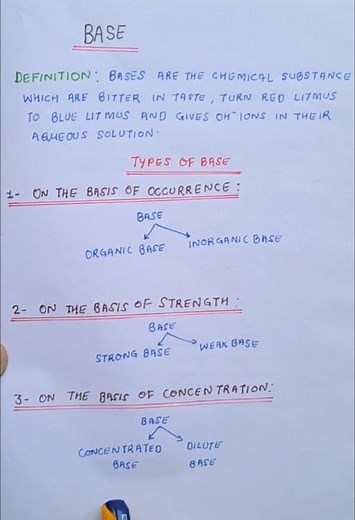 BASE
DEFINITION: BASES ARE THE CHEMICAL SUBSTANCE
WHICH ARE BITTER IN TASTE, TURN RED LITMUS
TO BLUE LITMUS AND GIVES OH⁻ IONS IN THEIR
AQUEOUS SOLUTION.
TYPES OF BASE
1- ON THE BASIS OF OCCURRENCE:
BASE
ORGANIC BASE INORGANIC BASE
2- ON THE BASIS OF STRENGTH:
BASE
STRONG BASE WEAK BASE
3- ON THE BASIS OF CONCENTRATION:
BASE
CONCENTRATED DILUTE
BASE BASE